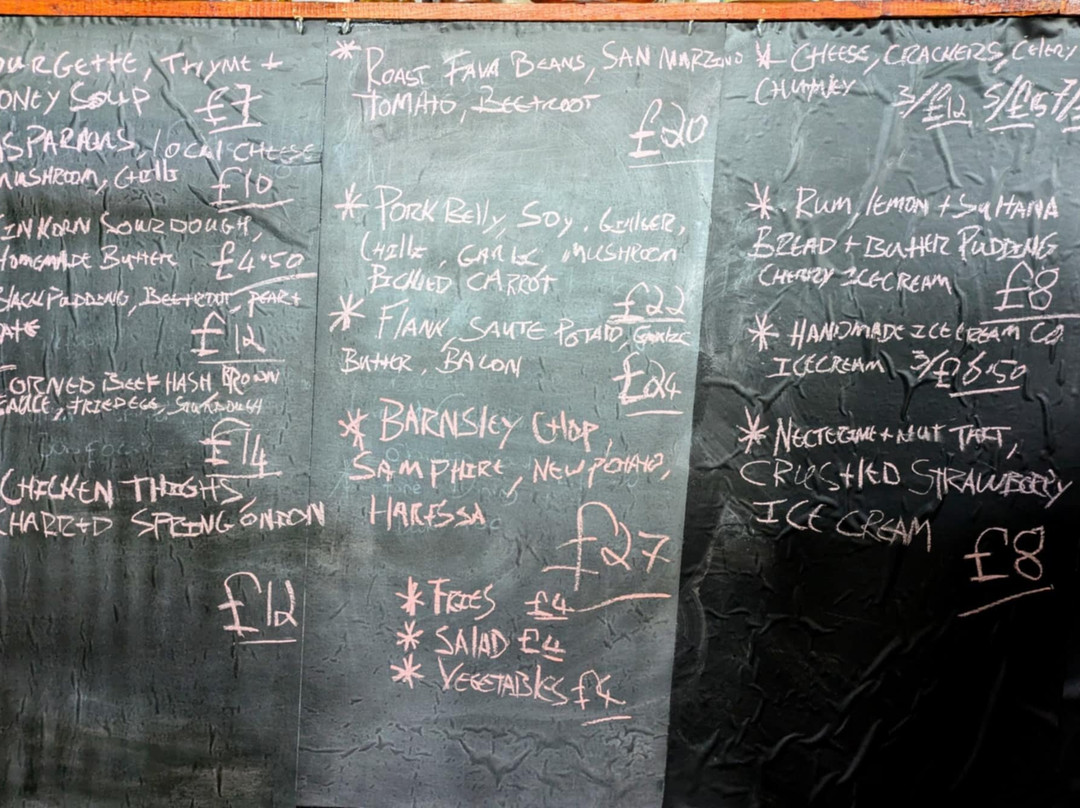 OURGETTE, THYME +
ONEY SOUP £7
SPARAGUS, LOCAL CHEESE
MUSHROOM, CHILLI £10
INKORN SOURDOUGH,
HOMEMADE BUTTER £4.50
BLACK PUDDING, BEETROOT, PEAR +
£12
CORNED BEEF HASH BROWN
SAUCE, FRIED EGG, SOURDOUGH
£14
CHICKEN THIGHS,
CHARRED SPRING ONION
£12
* ROAST FAVA BEANS, SAN MARZANO
TOMATO, BEETROOT
£20
* PORK BELLY, SOY, GINGER,
CHILLI, GARLIC, MUSHROOM
PICKLED CARROT
£22
* FLANK, SAUTE POTATO, GARLIC
BUTTER, BACON
£24
* BARNSLEY CHOP,
SAMPHIRE, NEW POTATO,
HARISSA
£27
* FRIES £4
* SALAD £4
* VEGETABLES £4
* CHEESE, CRACKERS, CELERY
CHUTNEY 3/£12 5/£15 7/
* RUM, LEMON + SULTANA
BREAD + BUTTER PUDDING
CHERRY ICECREAM £8
* HANDMADE ICE CREAM CO.
ICECREAM 3/£6.50
* NECTERINE + NUT TART,
CRUSHED STRAWBERRY
ICE CREAM
£8